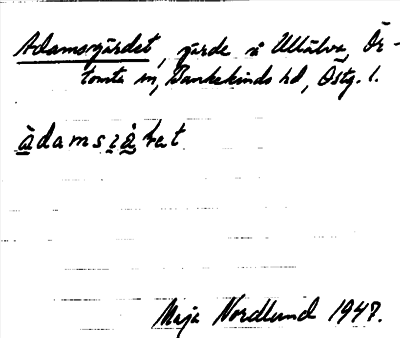 Adamsgärdet, gärde i Ullälva, Ör-
tomta sn, Bankekinds hd, Östg. l.
àdamsıåḷat
Maja Nordlund 1947.